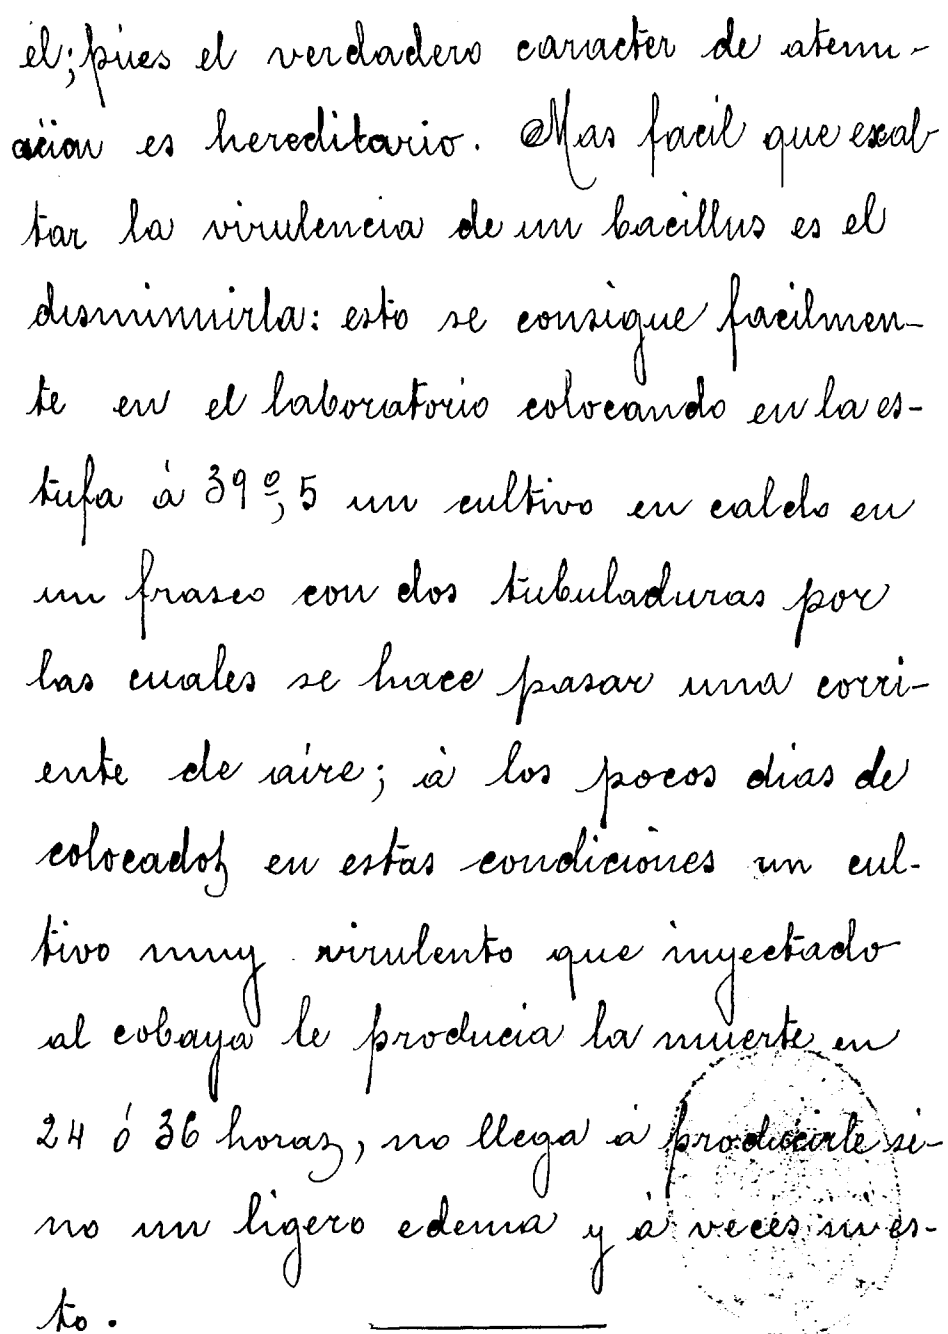 él; pues el verdadero caracter de atenu-
acion es hereditario. Mas facil que exal-
tar la virulencia de un bacillus es el
disminuirla: esto se consigue facilmen-
te en el laboratorio colocando en la es-
tufa á 39º,5 un cultivo en caldo en
un frasco con dos tubuladuras por
las cuales se hace pasar una corri-
ente de aire; á los pocos dias de
colocados en estas condiciones un cul-
tivo muy virulento que inyectado
al cobaya le producia la muerte en
24 ó 36 horas, no llega á producirle si-
no un ligero edema y á veces ni es-
to.